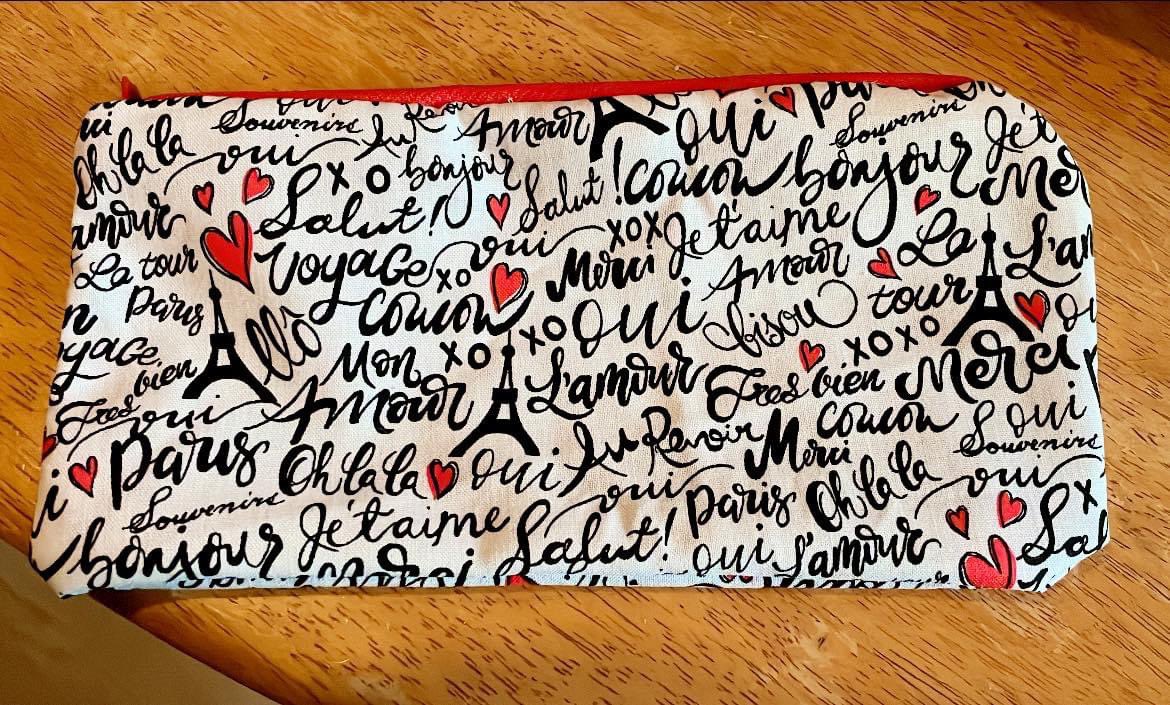 Souvenirs Au Revoir Amour Oui Souvenirs Je t
Oh la la oui bonjour Salut! Coucou bonjour Mer
amour XO Salut! oui XOX Je t'aime La L'am
La tour Voyage XO Merci Amour tour
Paris Coucou XO Oui bisou XOXO
yage llô Mon XO L'amour Tres bien Merci
bien Amour Coucou oui
Tres oui Au Revoir Merci Souvenirs
Paris Oh la la oui oui Paris Oh la la oui
Souvenirs Je t'aime Salut! X
bonjour oui L'amour Sal
Merci